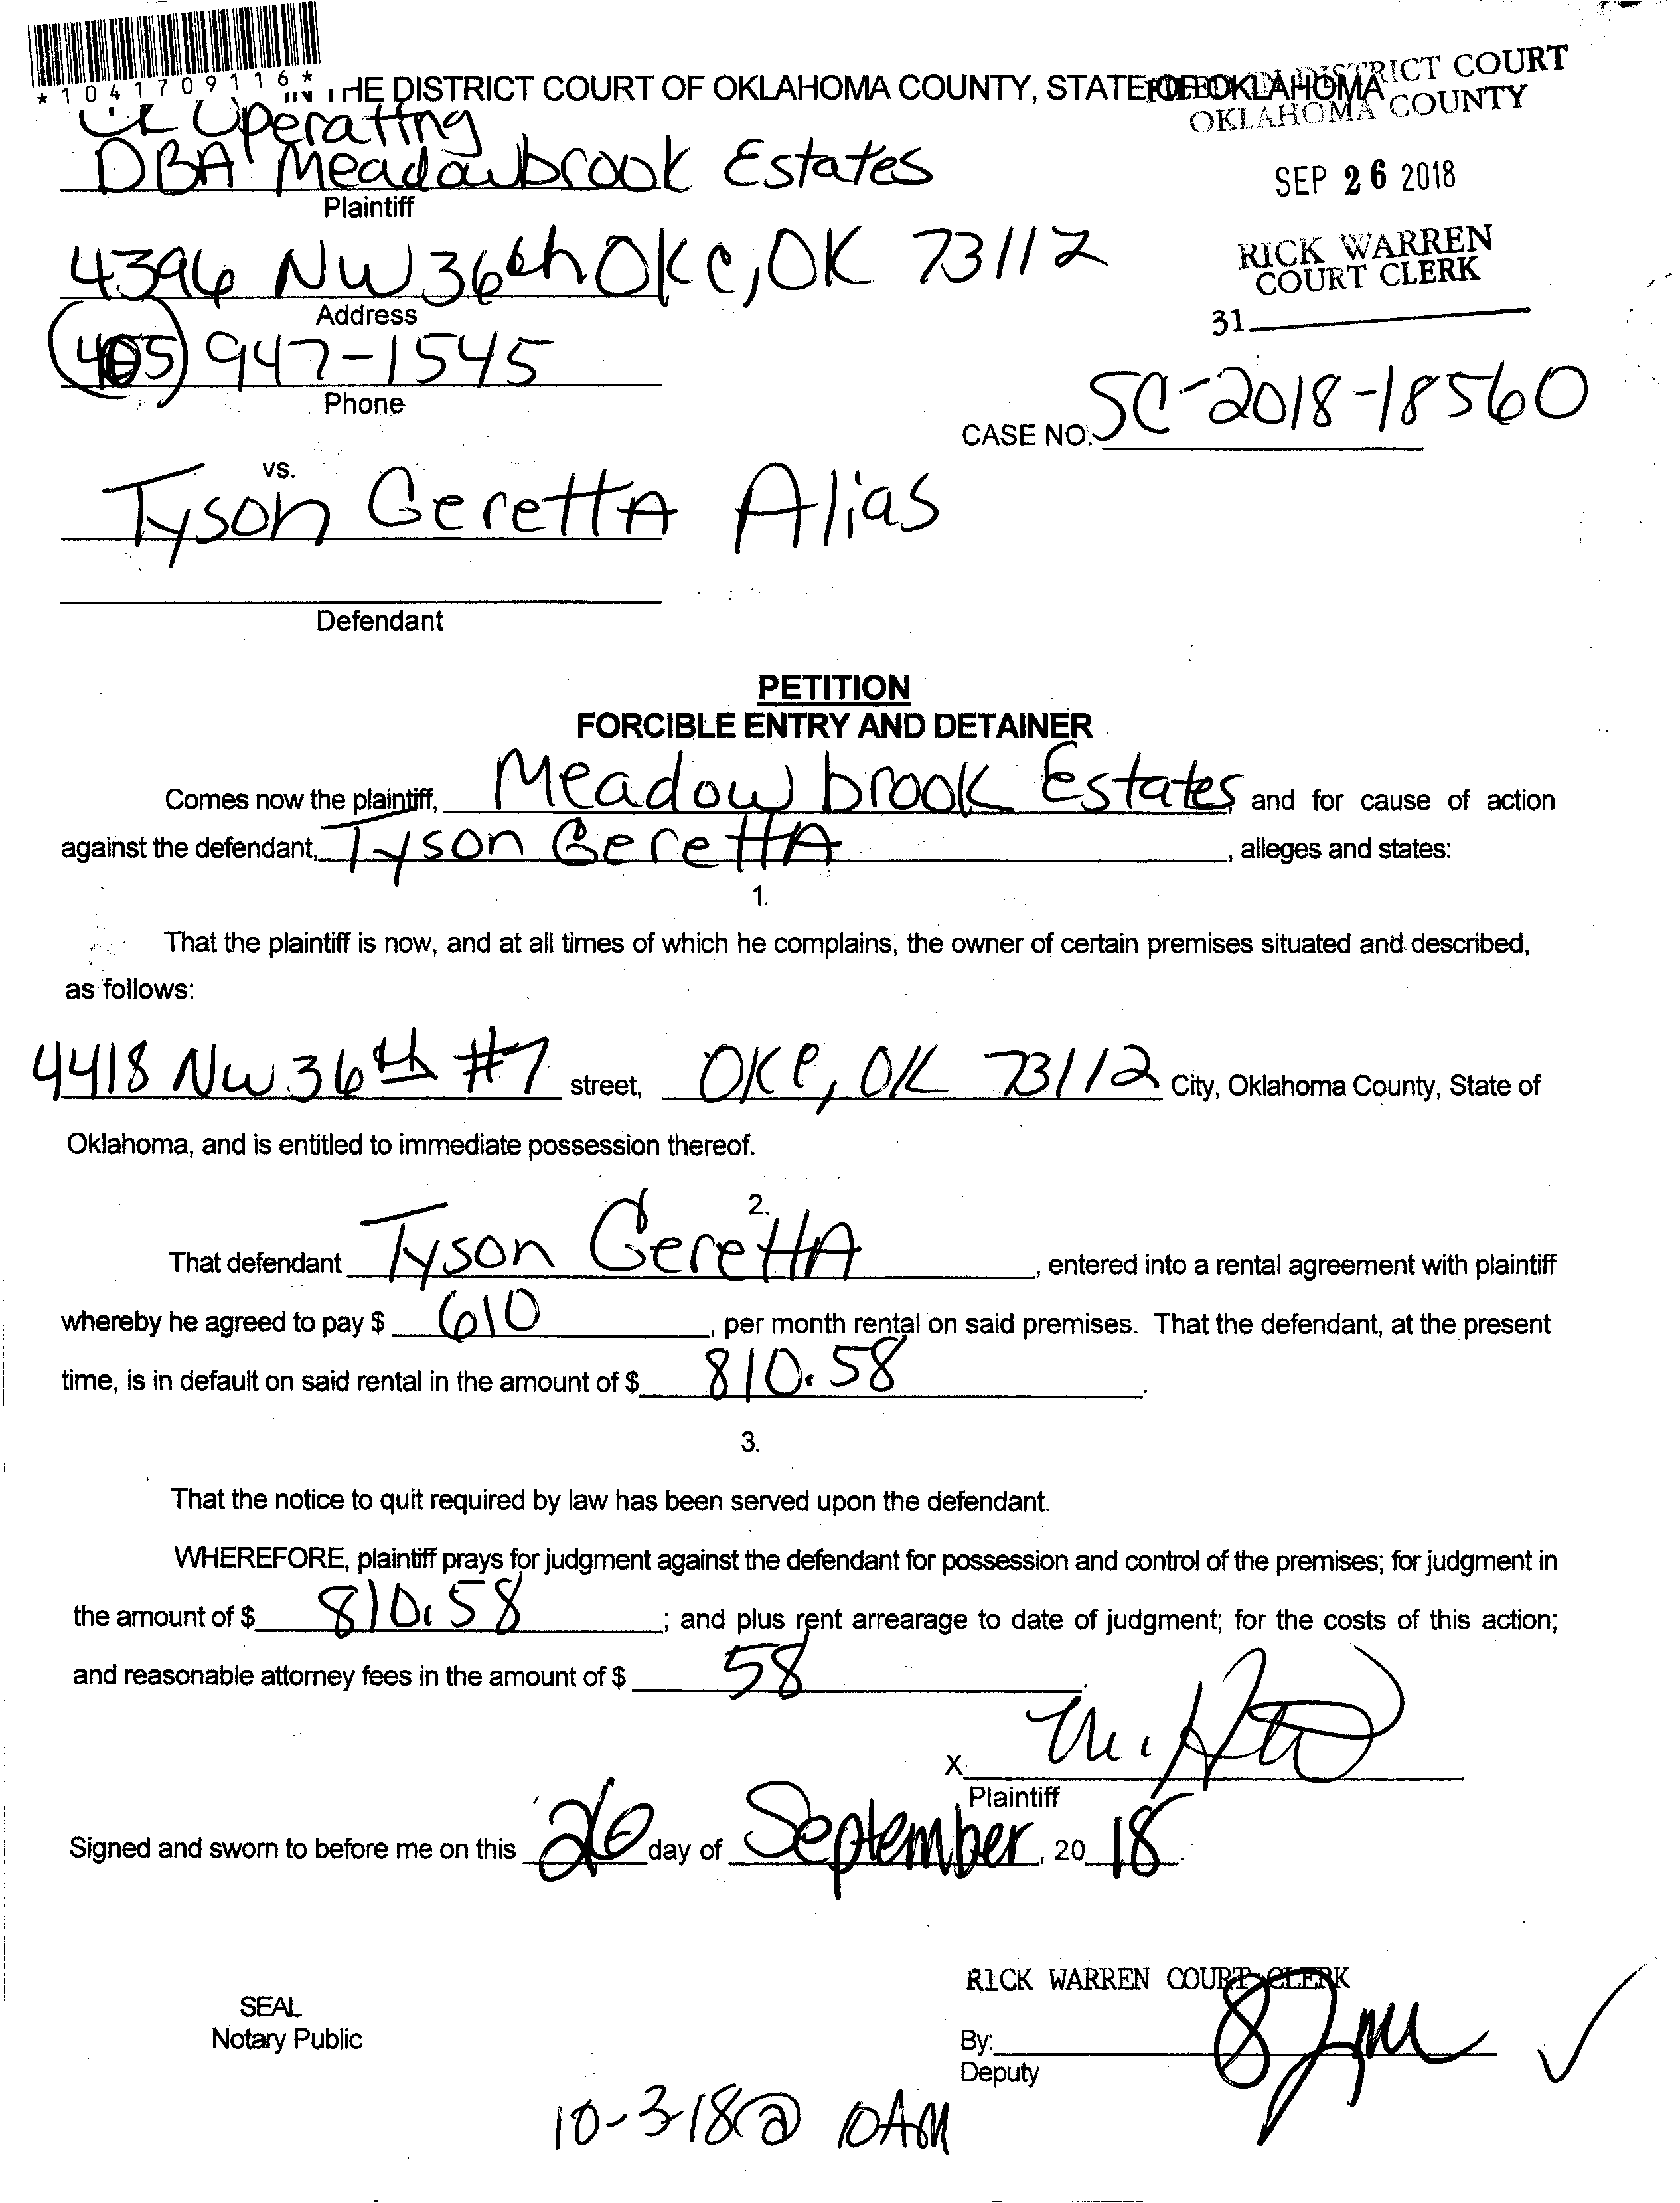 *1041709116*
THE DISTRICT COURT OF OKLAHOMA COUNTY, STATE OF OKLAHOMA
DISTRICT COURT
OKLAHOMA COUNTY
Operating
DBA Meadowbrook Estates
Plaintiff
SEP 26 2018
4396 NW 36th OKC, OK 73112
Address
RICK WARREN
COURT CLERK
31
(405) 947-1545
Phone
CASE NO. SC-2018-18560
vs.
Tyson Geretta Alias
Defendant
PETITION
FORCIBLE ENTRY AND DETAINER
Comes now the plaintiff, Meadowbrook Estates and for cause of action
against the defendant, Tyson Geretta, alleges and states:
1.
That the plaintiff is now, and at all times of which he complains, the owner of certain premises situated and described,
as follows:
4418 NW 36th #7 street, OKC, OK 73112 City, Oklahoma County, State of
Oklahoma, and is entitled to immediate possession thereof.
2.
That defendant Tyson Geretta, entered into a rental agreement with plaintiff
whereby he agreed to pay $ 610, per month rental on said premises. That the defendant, at the present
time, is in default on said rental in the amount of $ 810.58.
3.
That the notice to quit required by law has been served upon the defendant.
WHEREFORE, plaintiff prays for judgment against the defendant for possession and control of the premises; for judgment in
the amount of $ 810.58; and plus rent arrearage to date of judgment; for the costs of this action;
and reasonable attorney fees in the amount of $ 58.
X
Plaintiff
Signed and sworn to before me on this 26 day of September, 2018.
RICK WARREN COURT CLERK
SEAL
Notary Public
By:
Deputy
10-3-18@ 10AM